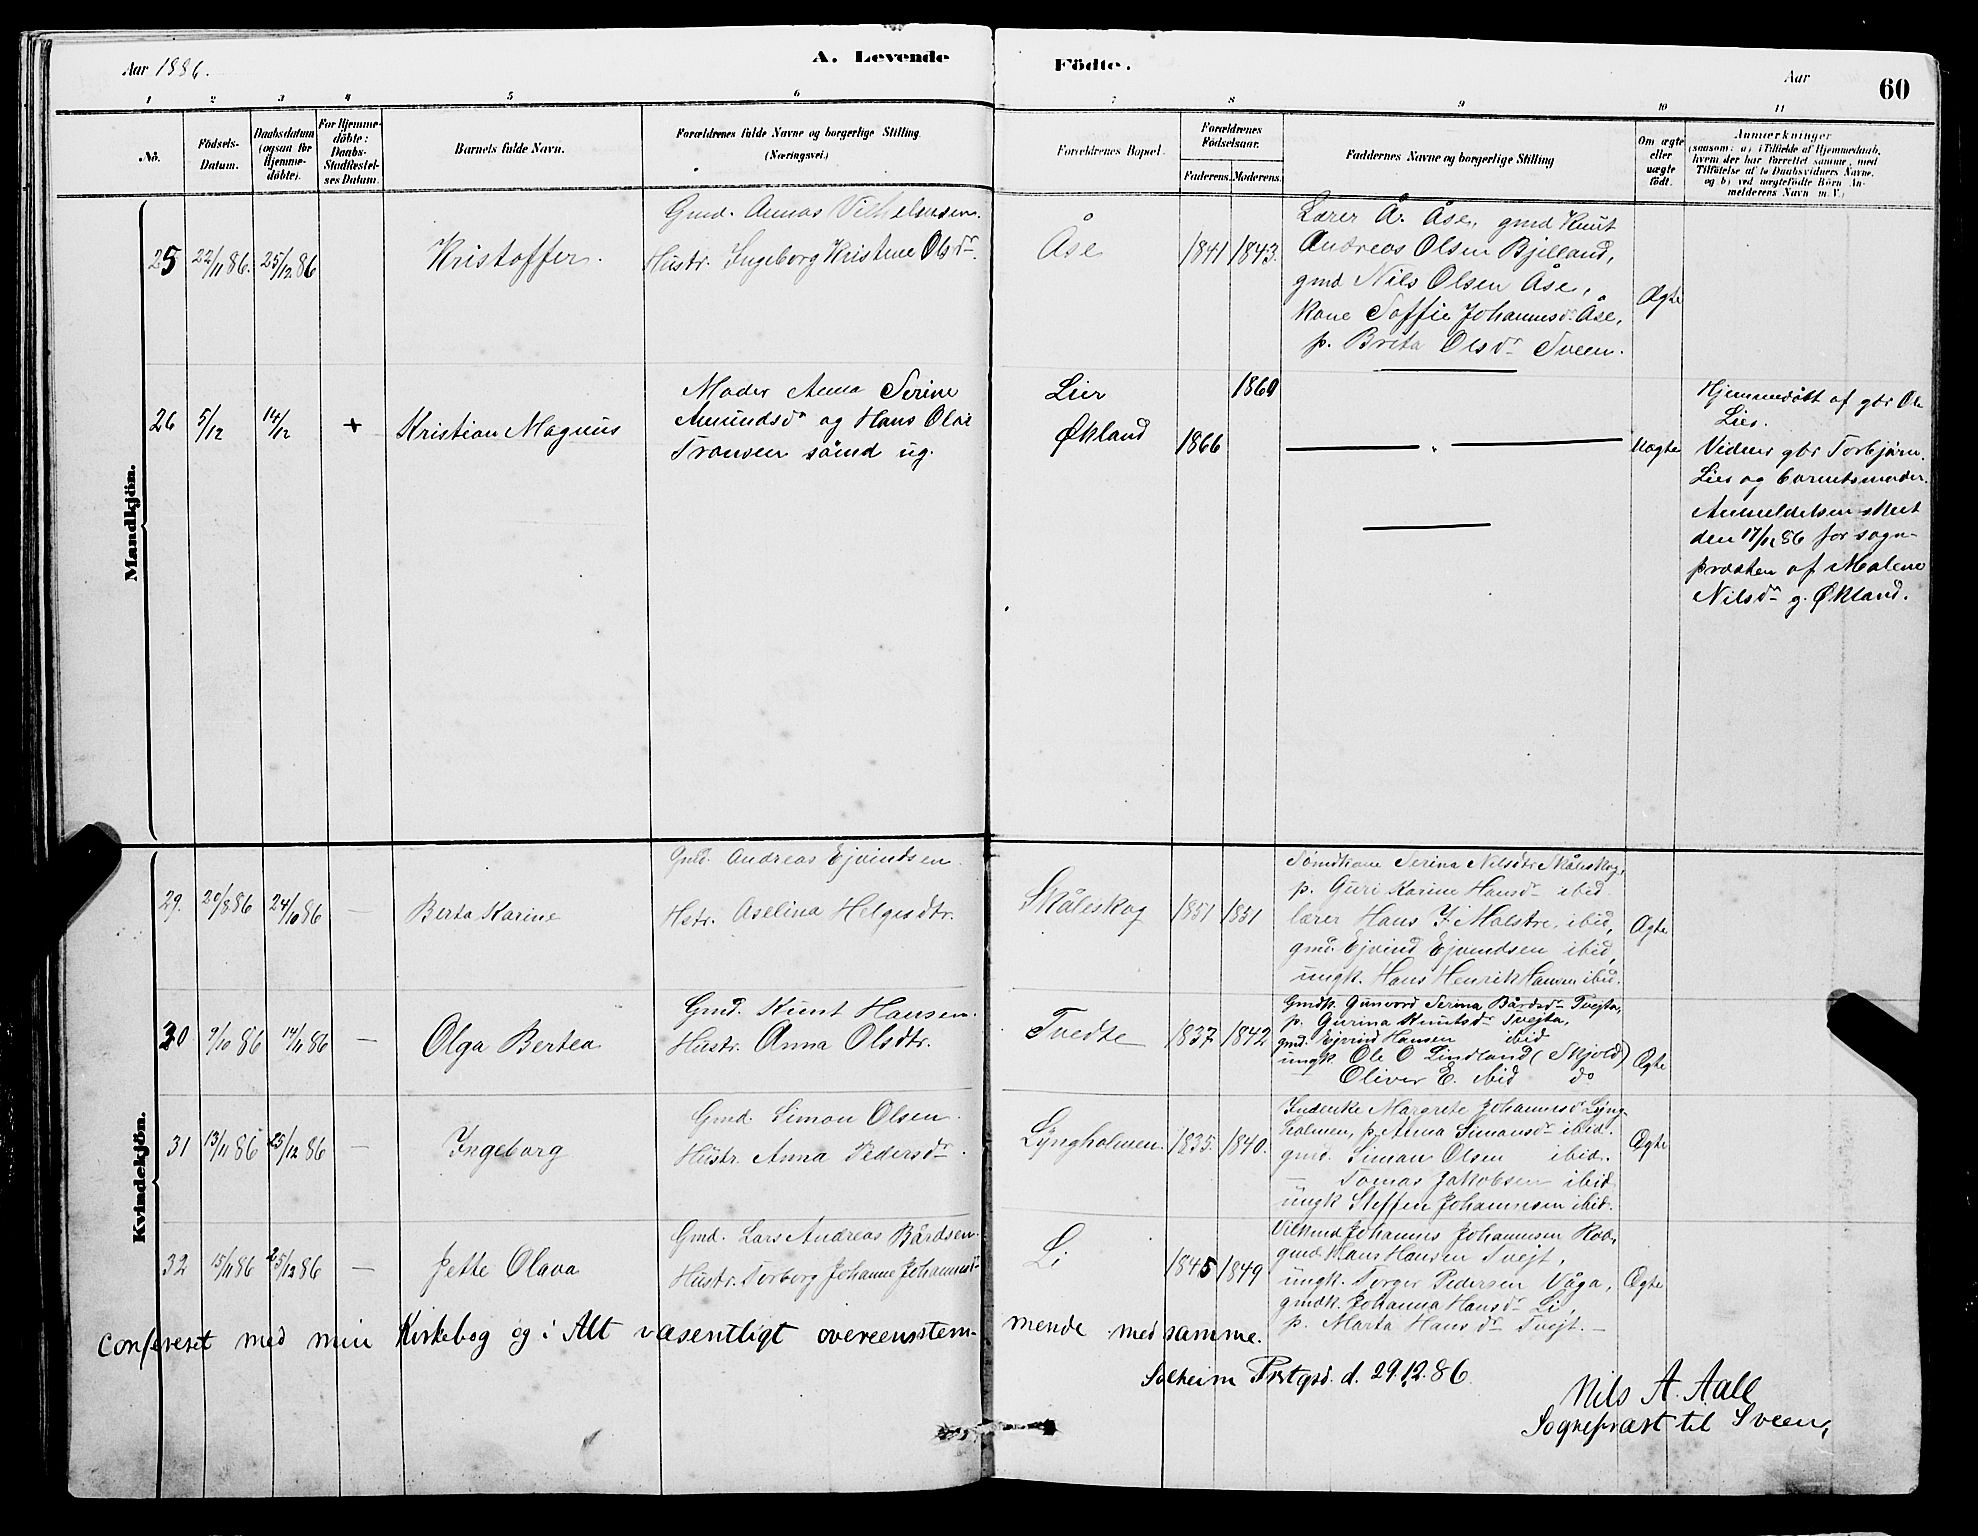 Aar 1886.
A. Levende Födte.
Aar
60
1 2 3 4 5 6 7 8 9 10 11
No.
Födsels-Datum.
Daabsdatum (ogsaa for Hjemme-döbte).
For Hjemme-döbte: Daabs-Stadfestel-ses Datum.
Barnets fulde Navn.
Forældrenes fulde Navne og borgerlige Stilling. (Næringsvei.)
Forældrenes Bopæl.
Forældrenes Födselsaar.
Faderens. Moderens.
Faddernes Navne og borgerlige Stilling
Om ægte eller uægte födt.
Anmærkninger
(saasom: a) i Tilfælde af Hjemmedaab,
hvem der har forrettet samme, med
Tilföielse af to Daabsvidners Navne.
og b) ved uægtefödte Börn An-
melderens Navn m. V.)
Mandkjön.
25 22/11 86. 25/12 86 Kristoffer.
Gmd.
Hustr. Ingeborg Kristene Olsdr.
Åse 1841 1843.
Lærer Å. Åse, gmd Knut
Andreas Olsen Bjelland,
gmd Nils Olsen Åse,
Kone Soffie Johannesdr. Åse,
p. Brita Olsdr Sveen.
Ægte
26 5/12 14/12 + Kristian Magnus
Moder Anna Serine
Amundsdr og Hans Olai
sömd ug.
Lier 1860
Økland 1866
Uægte
Hjemmedöbt af gbr Ole
Lier.
Vidner gbr Torbjörn
Lier og barnetsmoder.
Anmeldelsen skeet
den 17/12 86 for sogne-
præsten af Malene
Nilsdr g. Økland.
Kvindekjön.
29. 20/8 86 24/10 86 — Berta Karine
Gmd. Andreas Ejvindsen.
Hstr. Aselina Helgesdtr.
Skåleskog 1851 1851
Sömdkone Serina Nilsdtr Skåleskog,
p. Guri Karine Hansdr ibid
lærer Hans J. Malstre, ibid,
gmd. Ejvind Ejvindsen ibid,
ungk. Hans Henrik Hansen ibid.
Ægte
30 9/10 86 14/11 86 — Olga Bertea
Gmd. Knut Hansen.
Hustr. Anna Olsdtr.
Tvedte 1837 1842
Gmdk. Gunvord Serina Bårdsdr Tvejta,
p. Gurina Knutsdr Tvejta,
gmd. Ejvind Hansen ibid
ungk. Ole O Lindland (Skjold)
Oliver E. ibid do
Ægte
31 13/11 86 25/12 86 — Ingeborg
Gmd. Simon Olsen.
Hustr. Anna Pedersdr.
Lyngholmen. 1835. 1840.
Inderike Margrete Johannesdr Lyng-
holmen, p. Anna Simonsdr ibid.
gmd. Simon Olsen ibid.
— Tomas Jakobsen ibid
ungk Steffen Johannesen ibid.
Ægte
32 15/11 86 25/12 86 — Jette Olava
Gmd. Lars Andreas Bårdsen.
Hustr. Torborg Johanne Johannesdr
Li 1845 1849
Johannes Johannesen
gmd Hans Hansen Tvejt,
ungk. Torger Pedersen Våga,
gmdk. Johanna Hansdr Li,
p. Marta Hansdr Tvejt. —
Ægte
Confereret med min Kirkebog og i Alt væsentligt overeensstem-
mende med samme.
Solheim Prstgrd. d. 29.12.86.
Nils A. Aall
Sognepræst til Sveen.